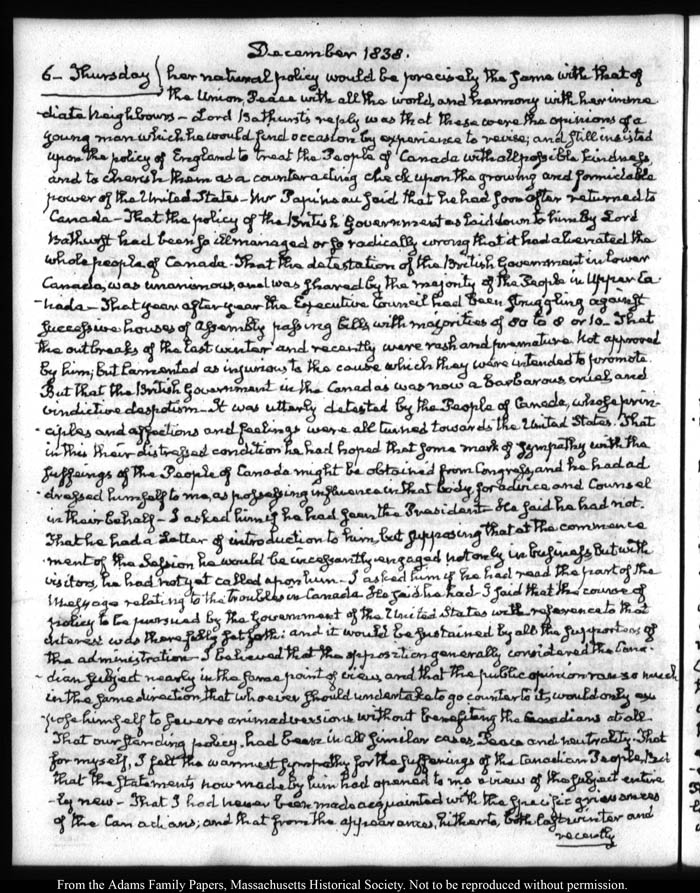 December 1838.
6 – Thursday} her natural policy would be precisely the same with that of
the Union, Peace with all the world, and harmony with her imme
diate Neighbours – Lord Bathurst's reply was that these were the opinions of a
young man which he would find occasion by experience to revise; and still insisted
upon the policy of England to treat the People of Canada with all possible kindness,
and to cherish them as a counteracting check upon the growing and formidable
power of the United States – Mr Papineau said that he had soon after returned to
Canada – That the policy of the British Government as laid down to him By Lord
Bathurst had been so ill managed or so radically wrong that it had alienated the
whole people of Canada – That the detestation of the British Government in Lower
Canada, was unanimous, and was shared by the majority of the People in Upper Ca
-nada – That year after year the Executive Council had been struggling against
successive houses of Assembly passing bills with majorities of 80 to 8 or 10 – That
the outbreaks of the last winter and recently were rash and premature. Not approved
by him; but lamented as injurious to the cause which they were intended to promote.
But that the British Government in the Canadas was now a barbarous cruel and
vindictive despotism – It was utterly detested by the People of Canada, whose prin-
-ciples and affections and feelings were all turned towards the United States. That
in this their distressed condition he had hoped that some mark of sympathy with the
sufferings of the People of Canada might be obtained from Congress, and he had ad
-dressed himself to me, as possessing influence in that body, for advice and Counsel
in their behalf – I asked him if he had seen the President – He said he had not.
That he had a Letter of introduction to him but supposing that at the commence
ment of the Session he would be incessantly engaged not only in business but with
visitors, he had not yet called upon him – I asked him if he had read the part of the
Message relating to the troubles in Canada. He said he had – I said that the course of
policy to be pursued by the Government of the United States with reference to that
interest was there fully set forth: and it would be sustained by all the supporters of
the administration – I believed that the opposition generally considered the Cana-
-dian subject nearly in the same point of view, and that the public opinion ran so much
in the same direction, that whoever should undertake to go counter to it, would only ex
-pose himself to severe animadversions without benefiting the Canadians at all.
That our standing policy, had been in all similar cases, Peace and neutrality. That
for myself, I felt the warmest sympathy for the sufferings of the Canadian People, But
that the statements now made by him had opened to me a view of the subject entire
-ly new – That I had never been made acquainted with the specific grievances
of the Canadians; and that from the appearances, hitherto, both last winter and
recently
From the Adams Family Papers, Massachusetts Historical Society. Not to be reproduced without permission.